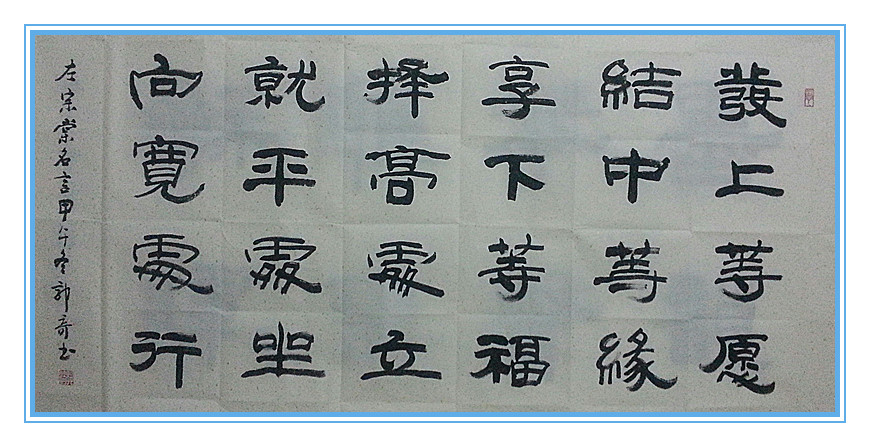 發上等愿
結中等緣
享下等福
择高處立
就平處坐
向寬處行
左宗棠名言甲午冬郭奇书